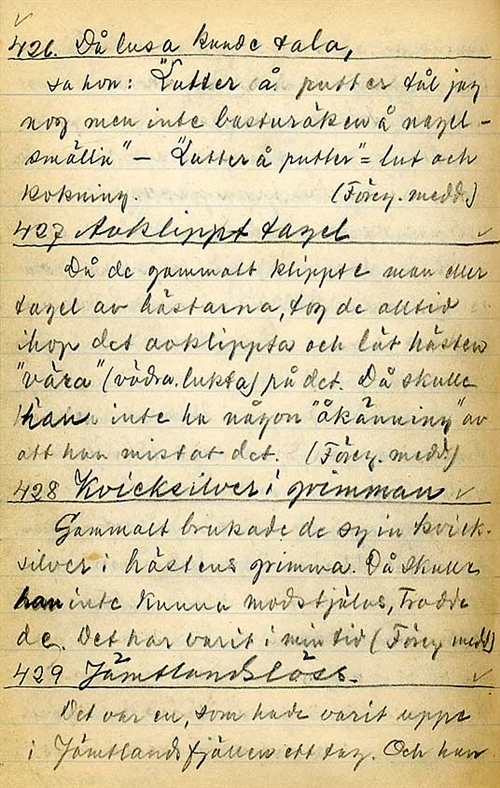 426. Då lusa kunde tala,
sa hon: "Lutter å putter tål jag
nog men inte basturöken å nagel-
smälln" – "Lutter å putter" = lut och
kokning. (Föreg. medd.)
427 Avklippt tagel
Då de gammalt klippte man eller
tagel av hästarna, tog de alltid
ihop det avklippta och lät hästen
"vära" (vädra. lukta) på det. Då skulle
han inte ha någon "åkänning" av
att han mistat det. (Föreg. medd.)
428 Kvicksilver i grimman
Gammalt brukade de sy in kvick-
silver i hästens grimma. Då skulle
han inte kunna modstjälas, trodde
de. Det har varit i min tid (Föreg medd)
429 Jämtlandslöss.
Det var en, som hade varit uppe
i Jämtlandsfjällen ett tag. Och han